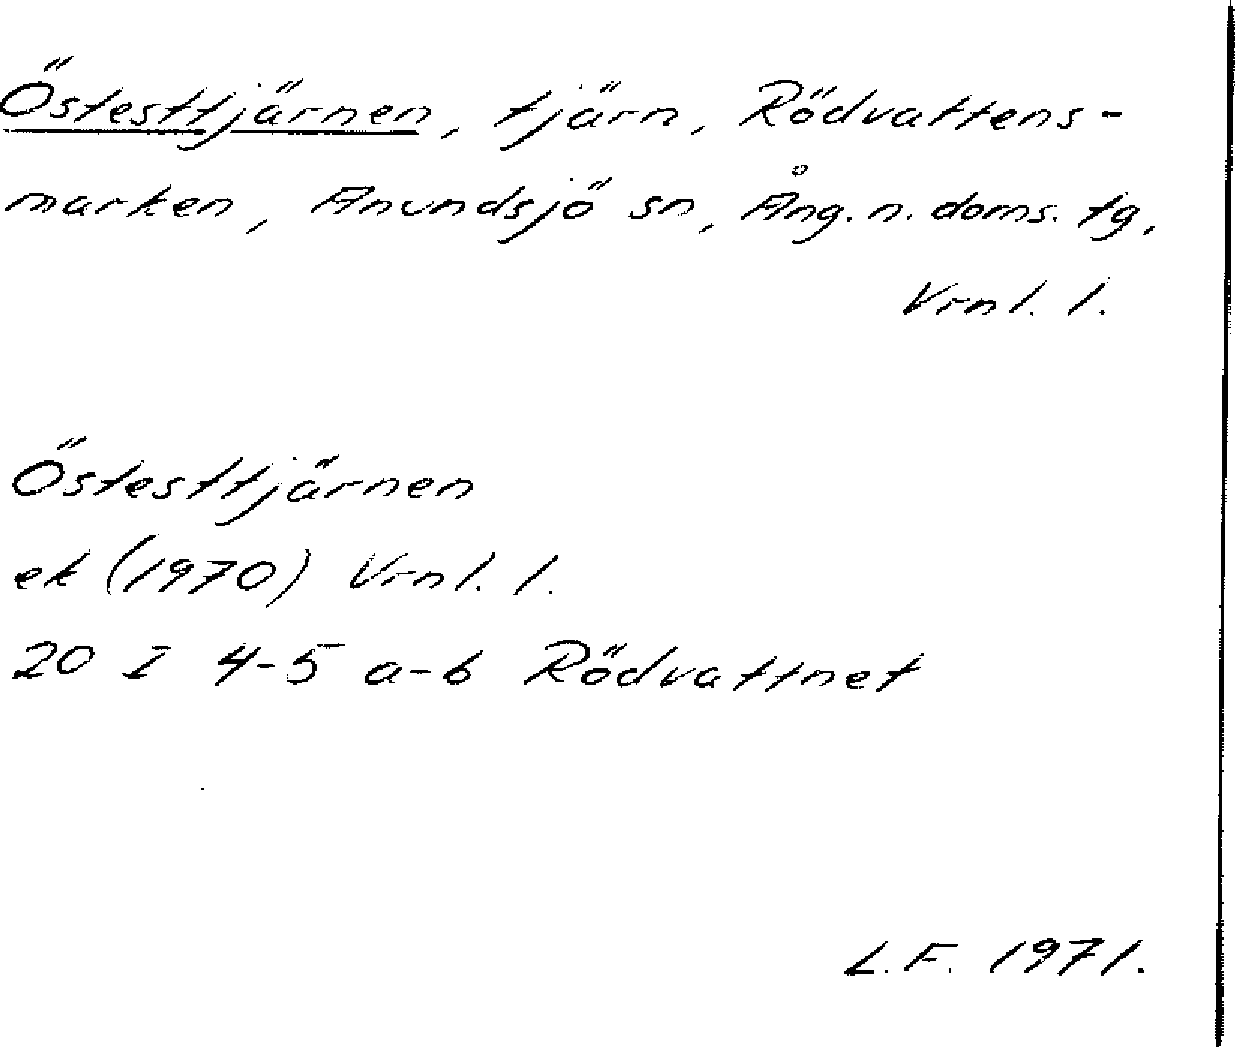 Östesttjärnen, tjärn, Rödvattens-
marken, Anundsjö sn, Ång. n. doms. tg,
Vrnl. l.
Östesttjärnen
ek (1970) Vrnl. l.
20 I 4-5 a-b Rödvattnet
L.F. 1971.